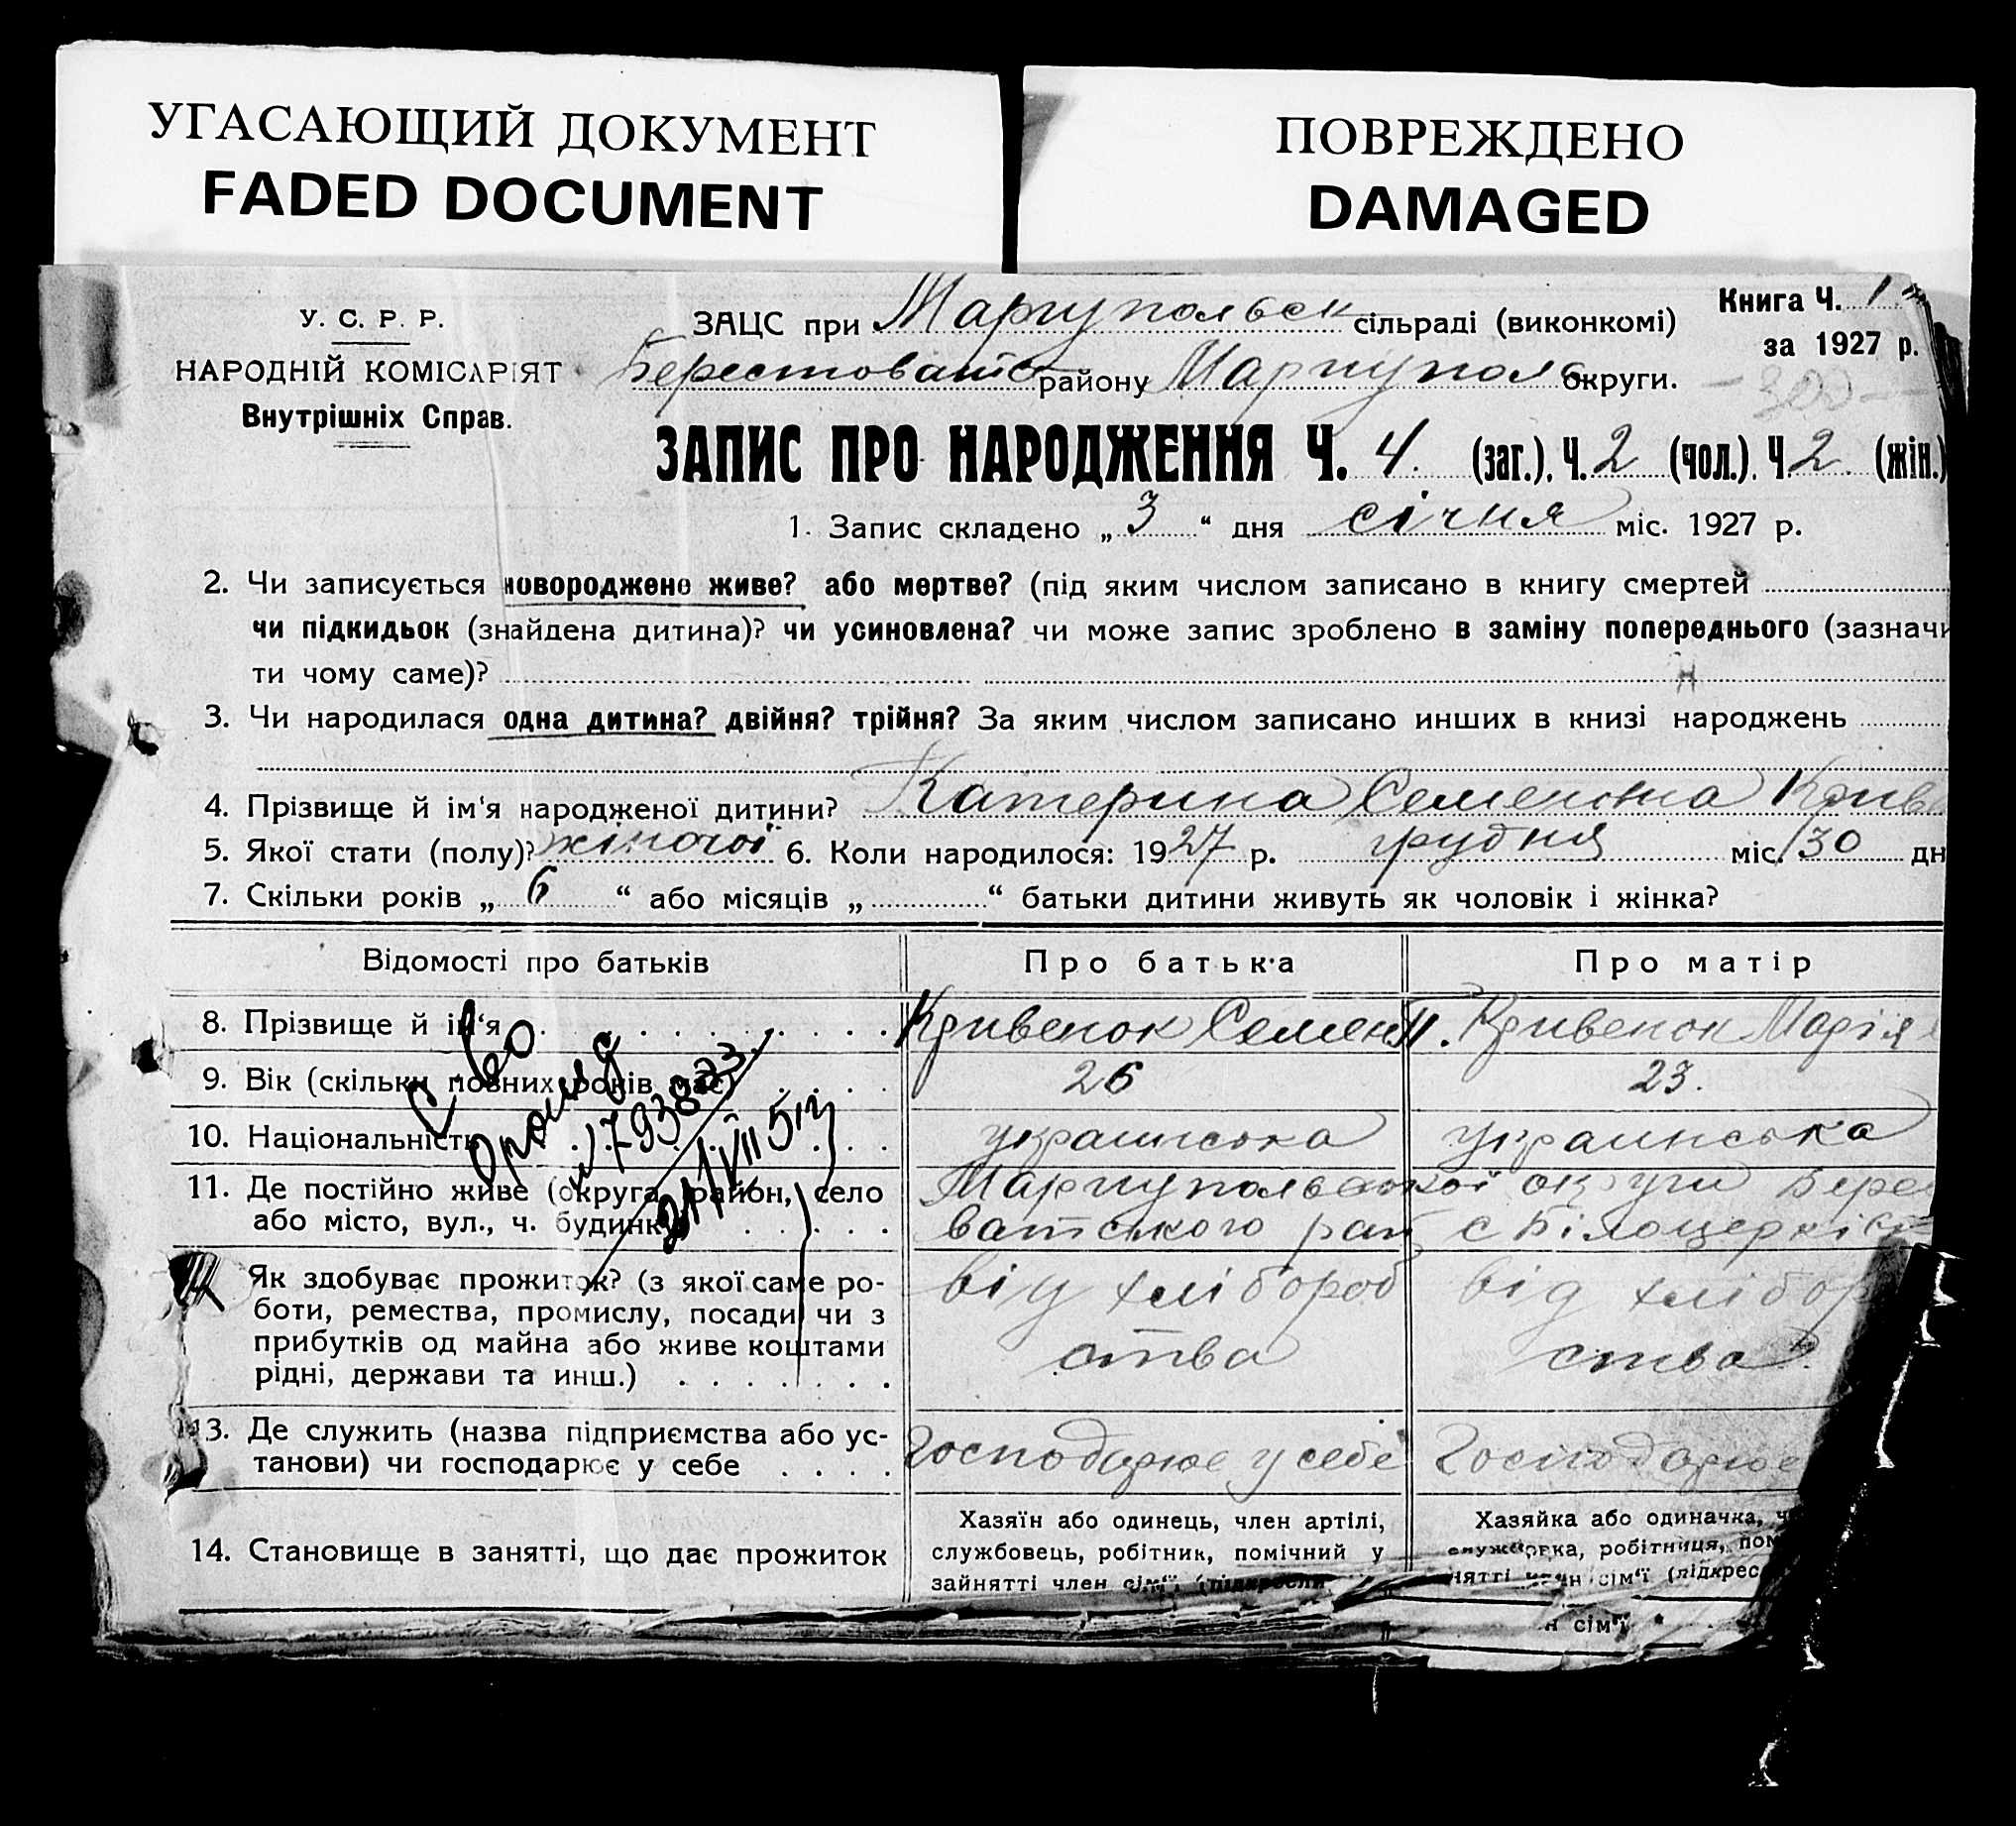 УГАСАЮЩИЙ ДОКУМЕНТ
FADED DOCUMENT
ПОВРЕЖДЕНО
DAMAGED
У. С. Р. Р.
НАРОДНІЙ КОМІСАРІЯТ
Внутрішніх Справ.
ЗАЦС при Маріупольск сільраді (виконкомі)
Берестоватс району Маріуполь округи.
Книга Ч. 1
за 1927 р.
- 300 -
ЗАПИС ПРО НАРОДЖЕННЯ Ч. 4. (заг.), Ч. 2 (чол.). Ч 2. (жін.)
1. Запис складено „ 3 “ дня січня міс. 1927 р.
2. Чи записується новороджене живе? або мертве? (під яким числом записано в книгу смертей
чи підкидьок (знайдена дитина)? чи усиновлена? чи може запис зроблено в заміну попереднього (зазначи
ти чому саме)?
3. Чи народилася одна дитина? двійня? трійня? За яким числом записано инших в книзі народжень
4. Прізвище й ім'я народженої дитини? Катерина Семеновна Криве
5. Якої стати (полу)? жіночої 6. Коли народилося: 1927 р. грудня міс. 30 дн
7. Скільки років „ 6 “ або місяців „ “ батьки дитини живуть як чоловік і жінка?
Відомості про батьків Про батька Про матір
8. Прізвище й ім'я Кривенок Семен П. Кривенок Марія
9. Вік (скільки повних років має) 26 23.
10. Національність украинська украинська
11. Де постійно живе (округа, район, село Маріупольської округи Бере
або місто, вул., ч. будинку ватського рай с Білоцерківс
С-во
793823
21/VII 51
Як здобуває прожиток? (з якої саме ро- від хлібороб від хлібор
боти, ремества, промислу, посади чи з
прибутків од майна або живе коштами ства ства
рідні, держави та инш.)
13. Де служить (назва підприємства або ус- Господарює у себе Господарює
танови) чи господарює у себе
14. Становище в занятті, що дає прожиток
Хазяїн або одинець, член артілі,
службовець, робітник, помічний у
зайнятті член сім'ї (підкресли
Хазяйка або одиначка, ч
службовка, робітниця, пом
нятті член сім'ї (підкрес
н сім'ї